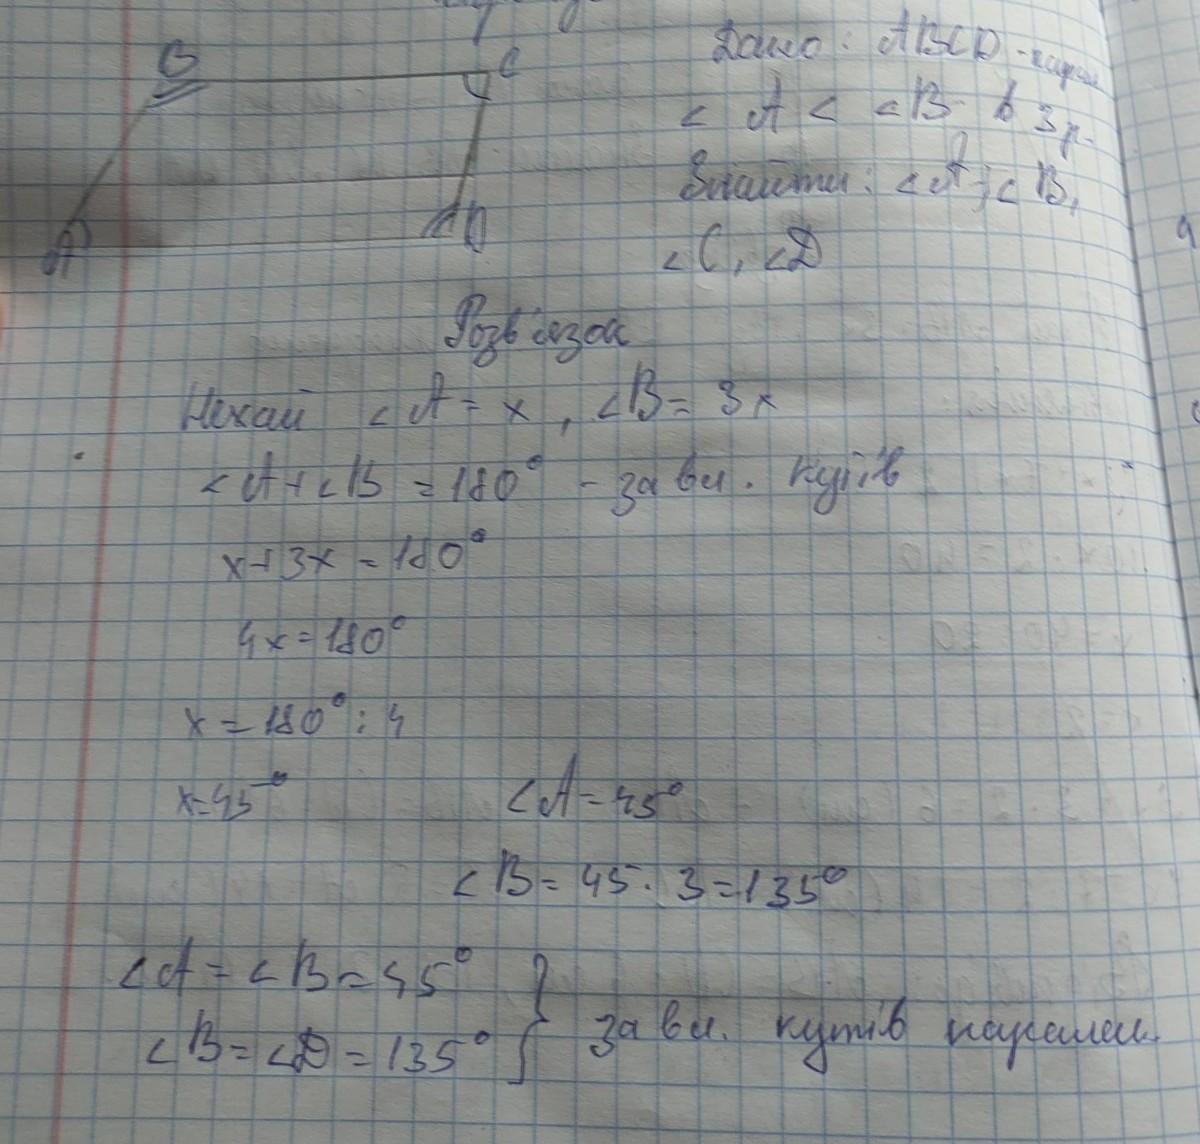 B C
A D
Дано: ABCD - парал
< A < < B в 3 р.
Знайти: < A, < B,
< C, < D
Розв'язок
Нехай < A = x, < B = 3x
< A + < B = 180° - за вл. кутів
x + 3x = 180°
4x = 180°
x = 180° : 4
x = 45° < A = 45°
< B = 45 · 3 = 135°
< A = < B = 45°
< B = < D = 135° } за вл. кутів паралел.